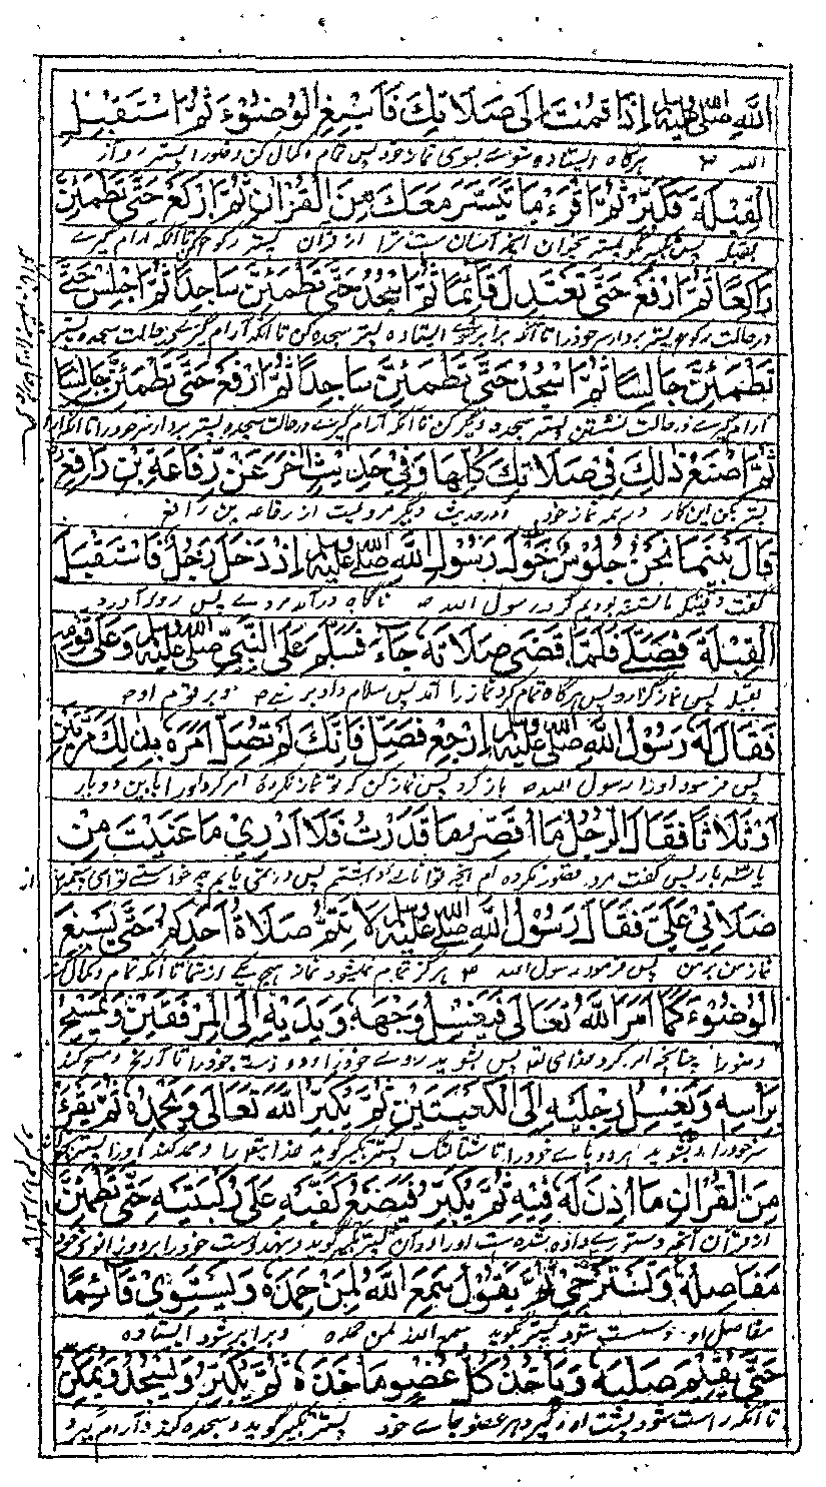 اللَّهِ صلى الله عليه وسلم إِذَا قُمْتَ إِلَى صَلَاتِكَ فَأَسْبِغِ الْوُضُوءَ ثُمَّ اسْتَقْبِلِ
الله ص هرگاه ایستاده شوی بسوی نماز خود پس تمام و کمال کن وضو را پستر رو آر
الْقِبْلَةَ فَكَبِّرْ ثُمَّ اقْرَءْ مَا تَيَسَّرَ مَعَكَ مِنَ الْقُرْآنِ ثُمَّ ارْكَعْ حَتَّى تَطْمَئِنَّ
بقبله پس تکبیر گو پستر بخوان آنچه آسان ست ترا از قرآن پستر رکوع کن تا آنکه آرام گیری
رَاكِعًا ثُمَّ ارْفَعْ حَتَّى تَعْتَدِلَ قَائِمًا ثُمَّ اسْجُدْ حَتَّى تَطْمَئِنَّ سَاجِدًا ثُمَّ اجْلِسْ حَتَّى
در حالت رکوع پستر بردار سر خود را تا آنکه برابر شوی ایستاده پستر سجده کن تا آنکه آرام گیری در حالت سجده پستر
تَطْمَئِنَّ جَالِسًا ثُمَّ اسْجُدْ حَتَّى تَطْمَئِنَّ سَاجِدًا ثُمَّ ارْفَعْ حَتَّى تَطْمَئِنَّ جَالِسًا
آرام گیری در حالت نشستن پستر سجده دیگر کن تا آنکه آرام گیری در حالت سجده پستر بردار سر خود را تا آنکه آرام
ثُمَّ اصْنَعْ ذٰلِكَ فِي صَلَاتِكَ كُلِّهَا وَفِي حَدِيثٍ آخَرَ عَنْ رِفَاعَةَ بْنِ رَافِعٍ
پستر بکن این کار در همه نماز خود و در حدیث دیگر مرویست از رفاعه بن رافع
قَالَ بَيْنَمَا نَحْنُ جُلُوسٌ حَوْلَ رَسُولِ اللَّهِ صلى الله عليه وسلم إِذْ دَخَلَ رَجُلٌ فَاسْتَقْبَلَ
گفت وقتیکه ما نشسته بودیم گرد رسول الله ص ناگاه در آمد مردی پس رو آورد
الْقِبْلَةَ فَصَلَّى فَلَمَّا قَضَى صَلَاتَهُ جَاءَ فَسَلَّمَ عَلَى النَّبِيِّ صلى الله عليه وسلم وَعَلَى قَوْمِهِ
بقبله پس نماز گزارد پس هرگاه تمام کرد نماز را آمد پس سلام داد بر نبی ص و بر قوم او
فَقَالَ لَهُ رَسُولُ اللَّهِ صلى الله عليه وسلم ارْجِعْ فَصَلِّ فَإِنَّكَ لَمْ تُصَلِّ أَمَرَهُ بِذٰلِكَ مَرَّتَيْنِ
پس فرمود او را رسول الله ص باز گرد پس نماز کن که تو نماز نکرده امر کرد او را باین دو بار
أَوْ ثَلَاثًا فَقَالَ الرَّجُلُ مَا أُقَصِّرُ مَا قَدَرْتُ فَلَا أَدْرِي مَا عَنَيْتَ مِنْ
یا سه بار پس گفت مرد قصور نکرده ام آنچه توانائی داشتم پس در نمی یابم چه خواستی تو ای پیغمبر از
صَلَاتِي عَلَيَّ فَقَالَ رَسُولُ اللَّهِ صلى الله عليه وسلم لَا تَتِمُّ صَلَاةُ أَحَدِكُمْ حَتَّى يُسْبِغَ
نماز من بر من پس فرمود رسول الله ص هرگز تمام نمیشود نماز هیچ یکی از شما تا آنکه تمام و کمال کند
الْوُضُوءَ كَمَا أَمَرَ اللَّهُ تَعَالَى فَيَغْسِلُ وَجْهَهُ وَيَدَيْهِ إِلَى الْمِرْفَقَيْنِ وَيَمْسَحُ
وضو را چنانچه امر کرد خدای تعالی پس بشوید روی خود را و دو دست خود را تا آرنج و مسح کند
بِرَأْسِهِ وَيَغْسِلُ رِجْلَيْهِ إِلَى الْكَعْبَيْنِ ثُمَّ يُكَبِّرُ اللَّهَ تَعَالَى وَيَحْمَدُهُ ثُمَّ يَقْرَءُ
سر خود را و بشوید هر دو پای خود را تا شتالنگ پستر تکبیر گوید خدایتعالی را و حمد کند او را پستر بخواند
مِنَ الْقُرْآنِ مَا أُذِنَ لَهُ فِيهِ ثُمَّ يُكَبِّرُ فَيَضَعُ كَفَّيْهِ عَلَى رُكْبَتَيْهِ حَتَّى تَطْمَئِنَّ
از قرآن آنچه دستوری داده شده است او را در آن پستر تکبیر گوید و بنهد دست خود را بر دو زانوی خود
مَفَاصِلُهُ وَتَسْتَرْخِيَ ثُمَّ يَقُولُ سَمِعَ اللَّهُ لِمَنْ حَمِدَهُ وَيَسْتَوِي قَائِمًا
مفاصل او و سست شود پستر بگوید سمع الله لمن حمده و برابر شود ایستاده
حَتَّى يُقِيمَ صُلْبَهُ وَيَأْخُذَ كُلُّ عُضْوٍ مَأْخَذَهُ ثُمَّ يُكَبِّرُ وَيَسْجُدُ وَيُمَكِّنُ
تا آنکه راست شود پشت او و گیرد هر عضو جای خود پستر تکبیر گوید و سجده کند و آرام گیرد